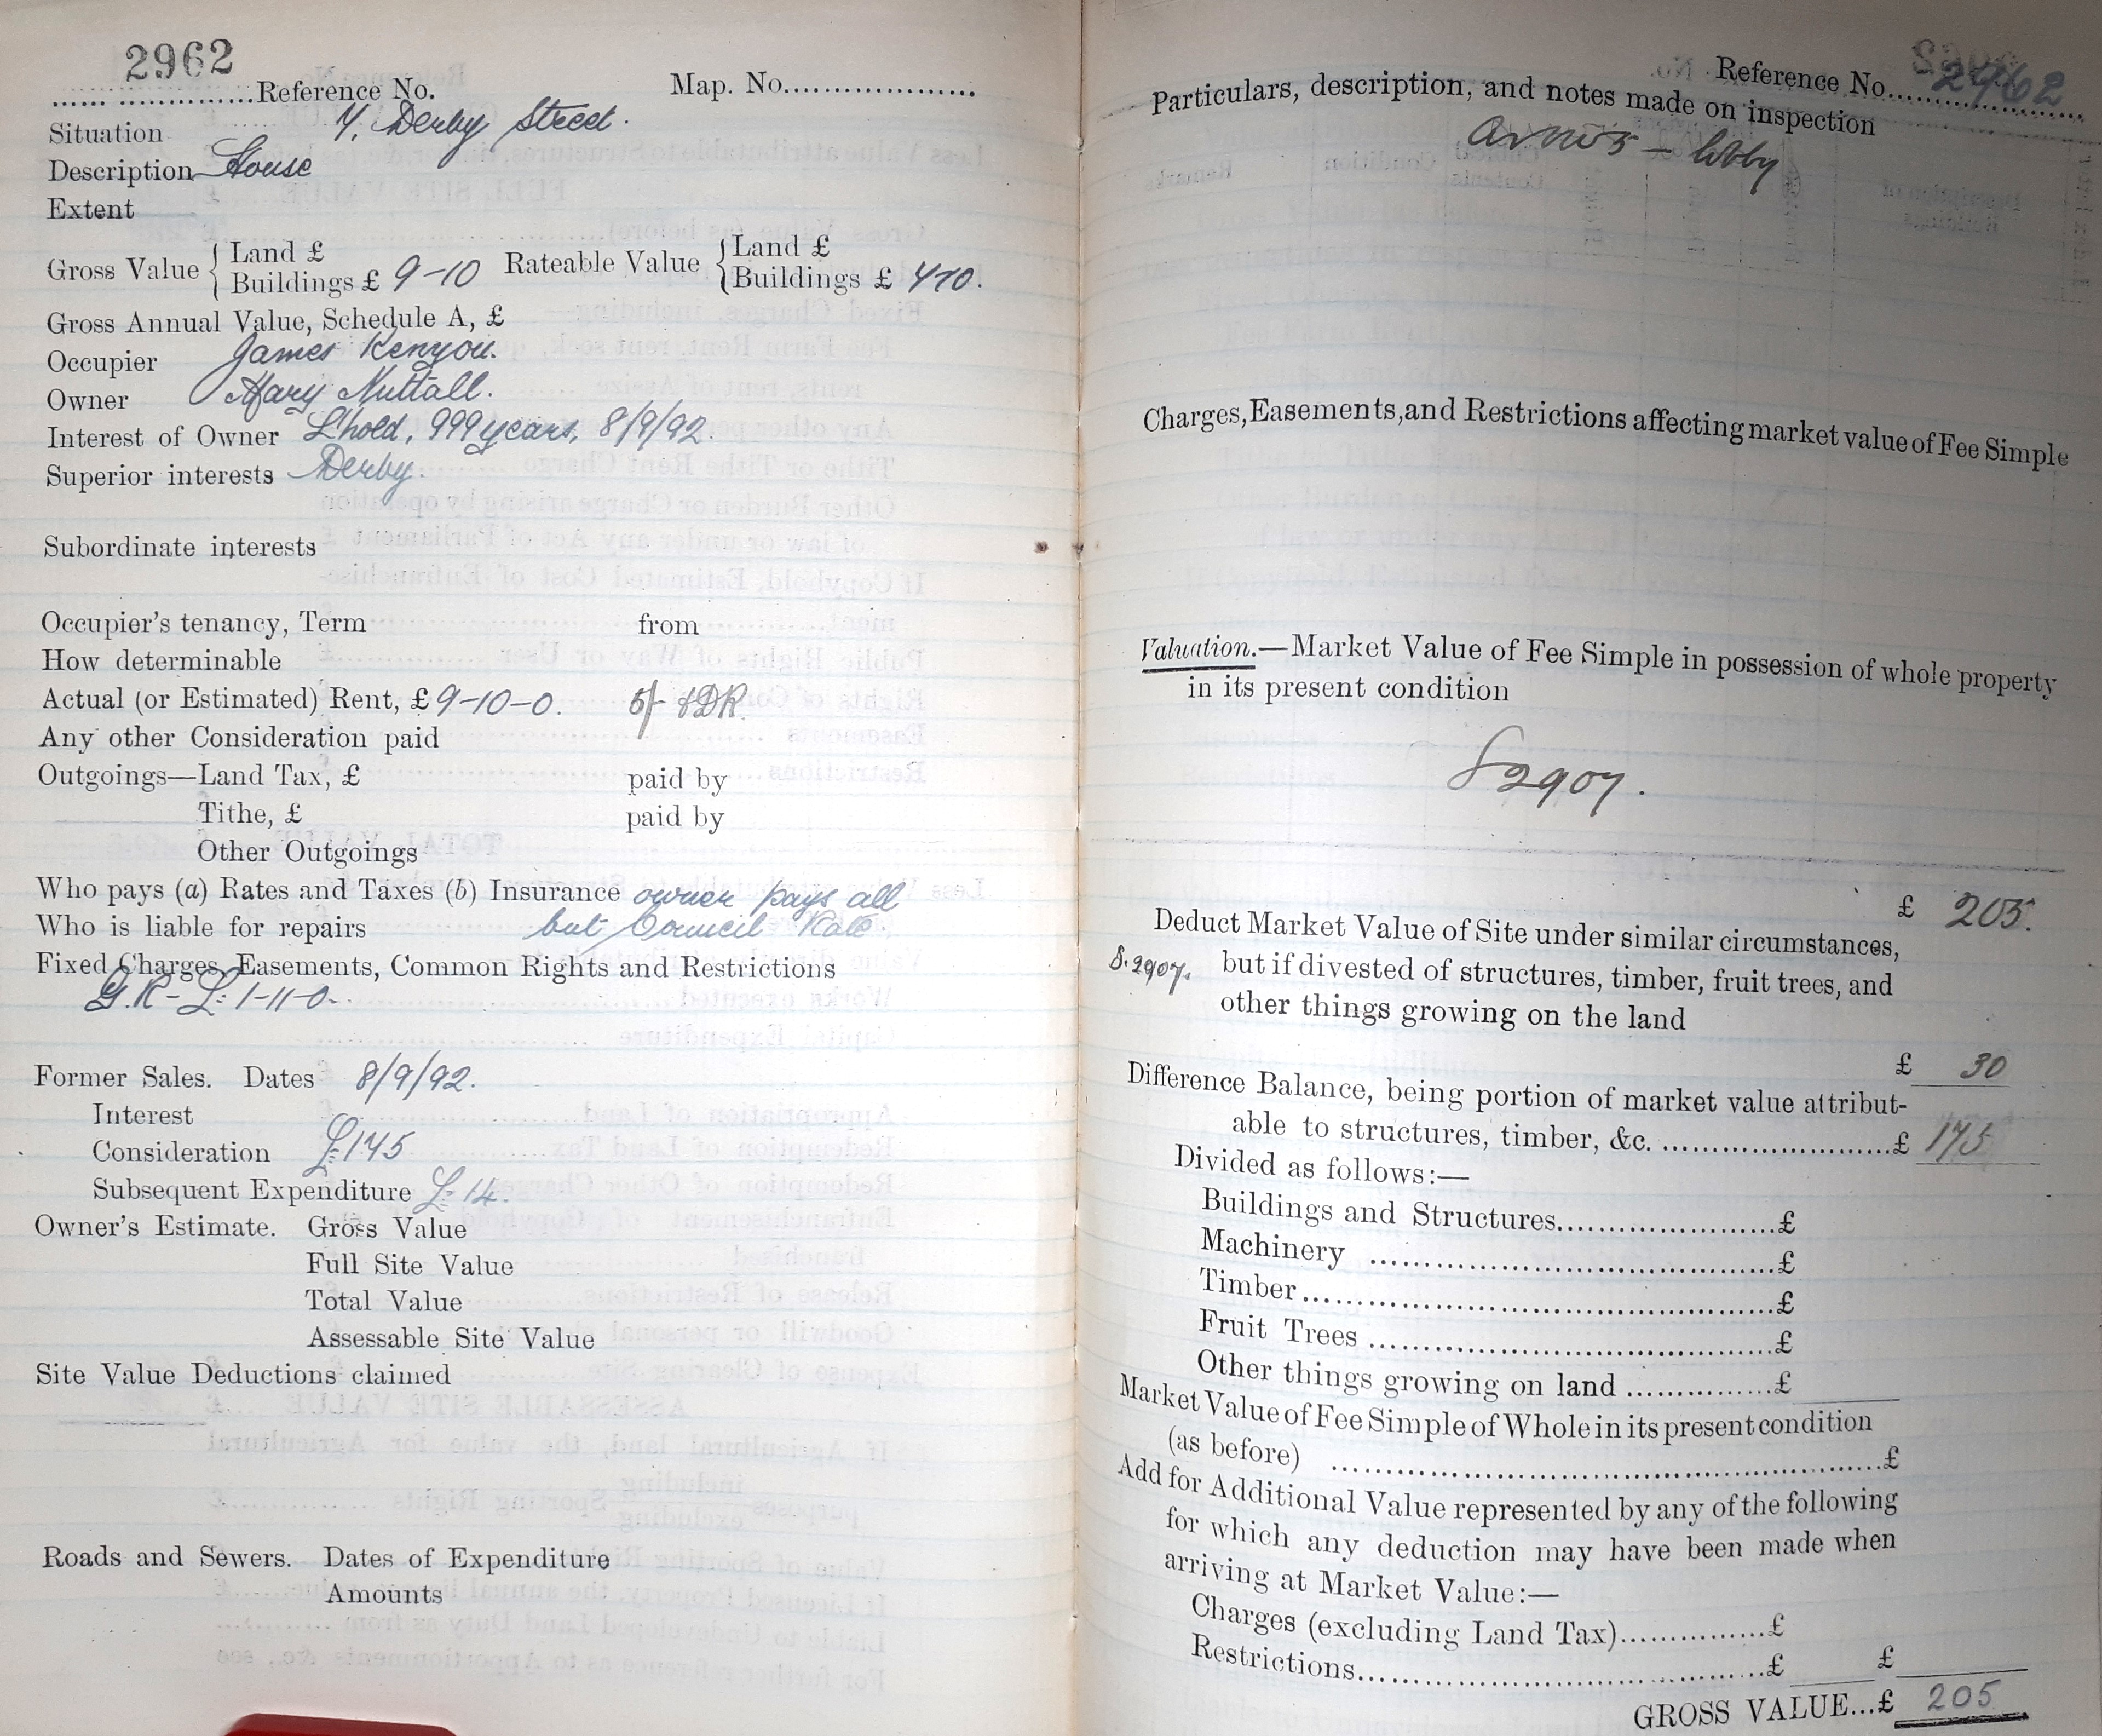 2962
...... ...............Reference No. Map. No....................
Situation 7, Derby Street.
Description House
Extent
Gross Value { Land £ Rateable Value { Land £
Buildings £ 9-10 Buildings £ 7-10.
Gross Annual Value, Schedule A, £
Occupier James Kenyon.
Owner Mary Nuttall.
Interest of Owner L'hold, 999 years, 8/9/92.
Superior interests Derby.
Subordinate interests
Occupier's tenancy, Term from
How determinable
Actual (or Estimated) Rent, £ 9-10-0. 5/- & DR.
Any other Consideration paid
Outgoings—Land Tax, £ paid by
Tithe, £ paid by
Other Outgoings
Who pays (a) Rates and Taxes (b) Insurance owner pays all
Who is liable for repairs but Council Rate.
Fixed Charges, Easements, Common Rights and Restrictions
G.R - £: 1-11-0.
Former Sales. Dates 8/9/92.
Interest
Consideration £175
Subsequent Expenditure £ 14.
Owner's Estimate. Gross Value
Full Site Value
Total Value
Assessable Site Value
Site Value Deductions claimed
Roads and Sewers. Dates of Expenditure
Amounts
Reference No. 2962
Particulars, description, and notes made on inspection
lobby
Charges, Easements, and Restrictions affecting market value of Fee Simple
Valuation.—Market Value of Fee Simple in possession of whole property
in its present condition
S 2907.
£ 205.
Deduct Market Value of Site under similar circumstances,
S. 2907. but if divested of structures, timber, fruit trees, and
other things growing on the land
£ 30
Difference Balance, being portion of market value attribut-
able to structures, timber, &c. .........................£ 175
Divided as follows:—
Buildings and Structures.......................£
Machinery ...........................................£
Timber..................................................£
Fruit Trees ...........................................£
Other things growing on land ................£
Market Value of Fee Simple of Whole in its present condition
(as before) ............................................................£
Add for Additional Value represented by any of the following
for which any deduction may have been made when
arriving at Market Value:—
Charges (excluding Land Tax)................£
Restrictions...........................................£ £
GROSS VALUE...£ 205